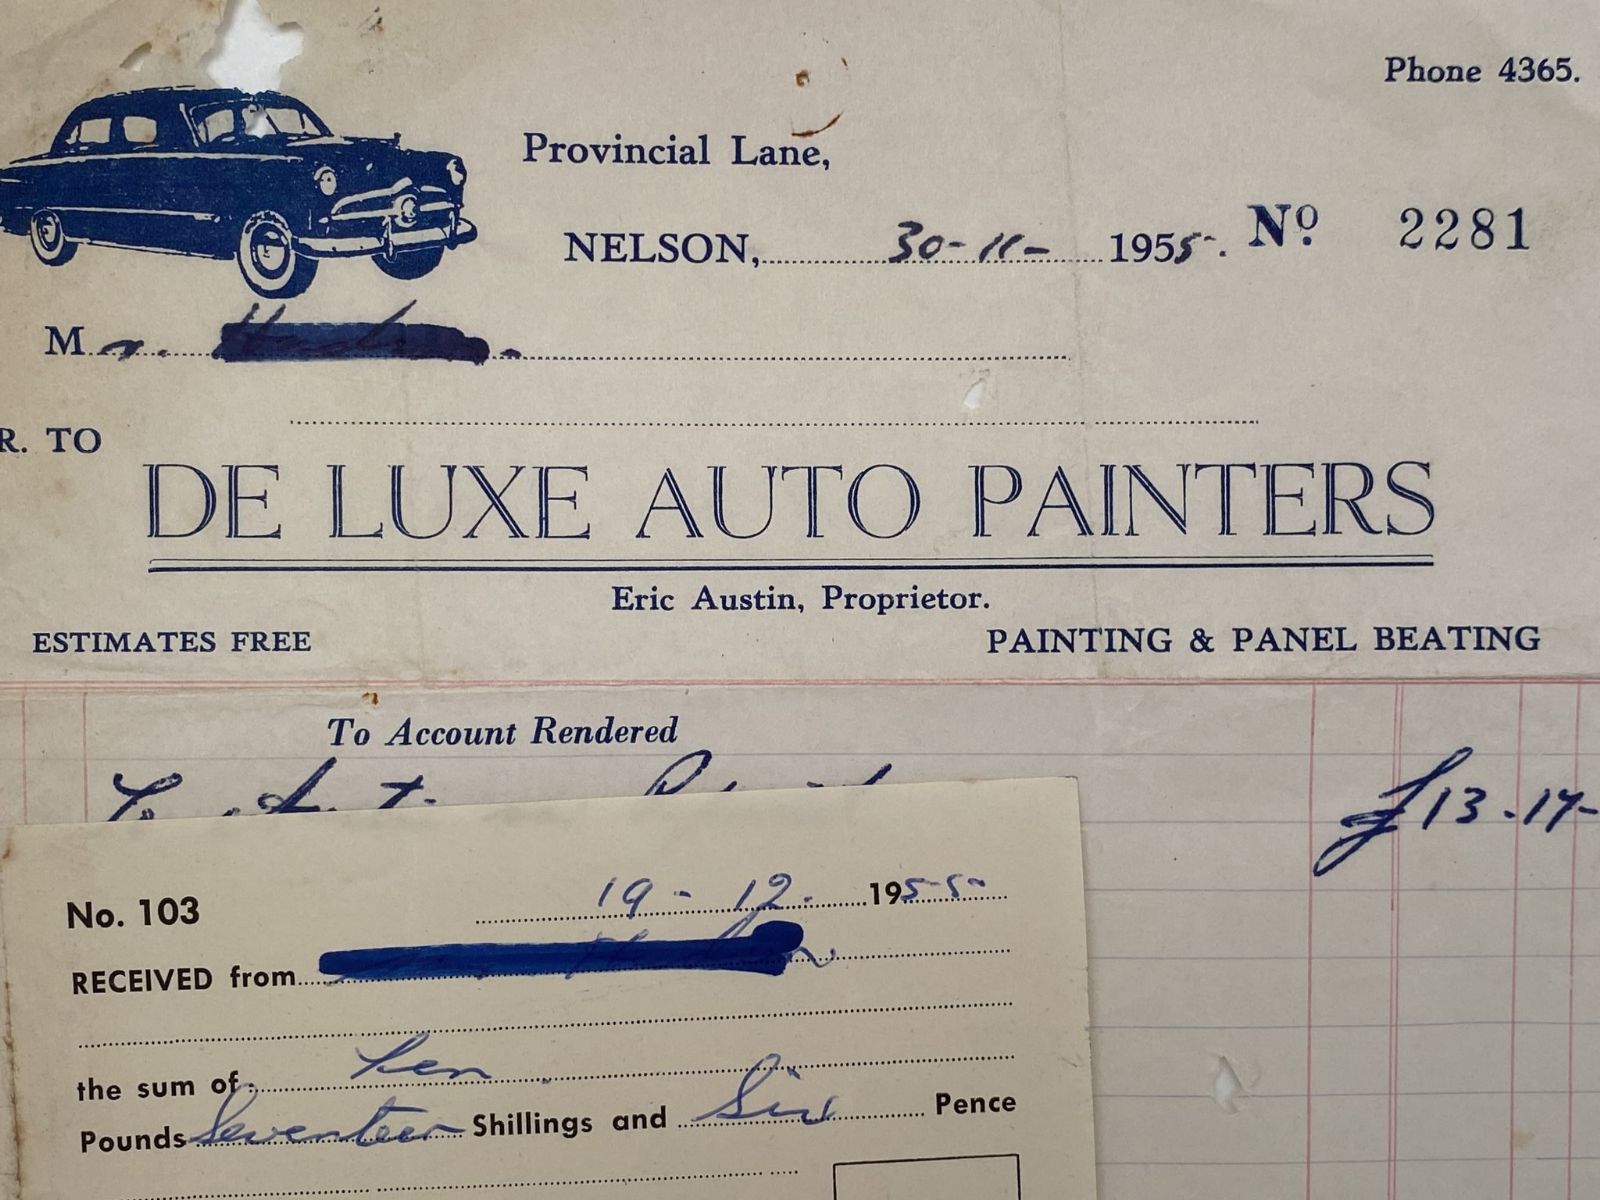 Phone 4365.
Provincial Lane,
NELSON, 30-11- 1955. No. 2281
Mr.
R. TO
DE LUXE AUTO PAINTERS
Eric Austin, Proprietor.
ESTIMATES FREE PAINTING & PANEL BEATING
To Account Rendered
£13.17-
No. 103 19-12. 1955-
RECEIVED from
the sum of Ten
Pounds Seventeen Shillings and Six Pence